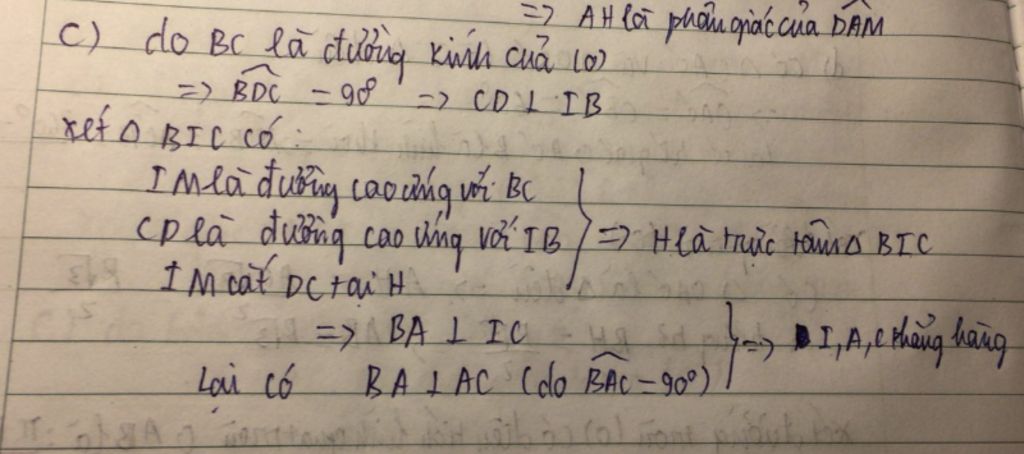 => AH là phân giác của DAM
c) do BC là đường kính của (O)
=> BDC = 90° => CD ⊥ IB
xét Δ BIC có:
IM là đường cao ứng với BC
CD là đường cao ứng với IB => H là trực tâm Δ BIC
IM cắt DC tại H
=> BA ⊥ IC => I, A, C thẳng hàng
Lại có BA ⊥ AC (do BAC = 90°)